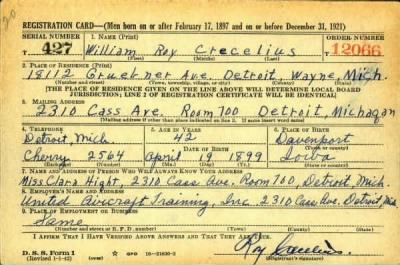 REGISTRATION CARD—(Men born on or after February 17, 1897 and on or before December 31, 1921)
SERIAL NUMBER 1. NAME (Print) ORDER NUMBER
427 William Roy Crecelius 12066
(First) (Middle) (Last)
2. PLACE OF RESIDENCE (Print)
18112 Gruebner Ave. Detroit, Wayne, Mich.
(Number and street) (Town, township, village, or city) (County) (State)
[THE PLACE OF RESIDENCE GIVEN ON THE LINE ABOVE WILL DETERMINE LOCAL BOARD
JURISDICTION; LINE 2 OF REGISTRATION CERTIFICATE WILL BE IDENTICAL]
3. MAILING ADDRESS
2310 Cass Ave. Room 700 Detroit, Michagan
[Mailing address if other than place indicated on line 2. If same insert word same]
4. TELEPHONE 5. AGE IN YEARS 6. PLACE OF BIRTH
Detroit, Mich. 42 Davenport
DATE OF BIRTH (Town or county)
Cherry 2564 April 19 1899 Iowa
(Exchange) (Number) (Mo.) (Day) (Yr.) (State or country)
7. NAME AND ADDRESS OF PERSON WHO WILL ALWAYS KNOW YOUR ADDRESS
Miss Clara Hight, 2310 Cass Ave. Room 700, Detroit, Mich.
8. EMPLOYER'S NAME AND ADDRESS
United Aircraft Training, Inc. 2310 Cass Ave. Detroit Mich
9. PLACE OF EMPLOYMENT OR BUSINESS
Same
(Number and street or R. F. D. number) (Town) (County) (State)
I AFFIRM THAT I HAVE VERIFIED ABOVE ANSWERS AND THAT THEY ARE TRUE.
D. S. S. Form 1
(Revised 1-1-42) (over) GPO 16—21630-2
Roy Crecelius